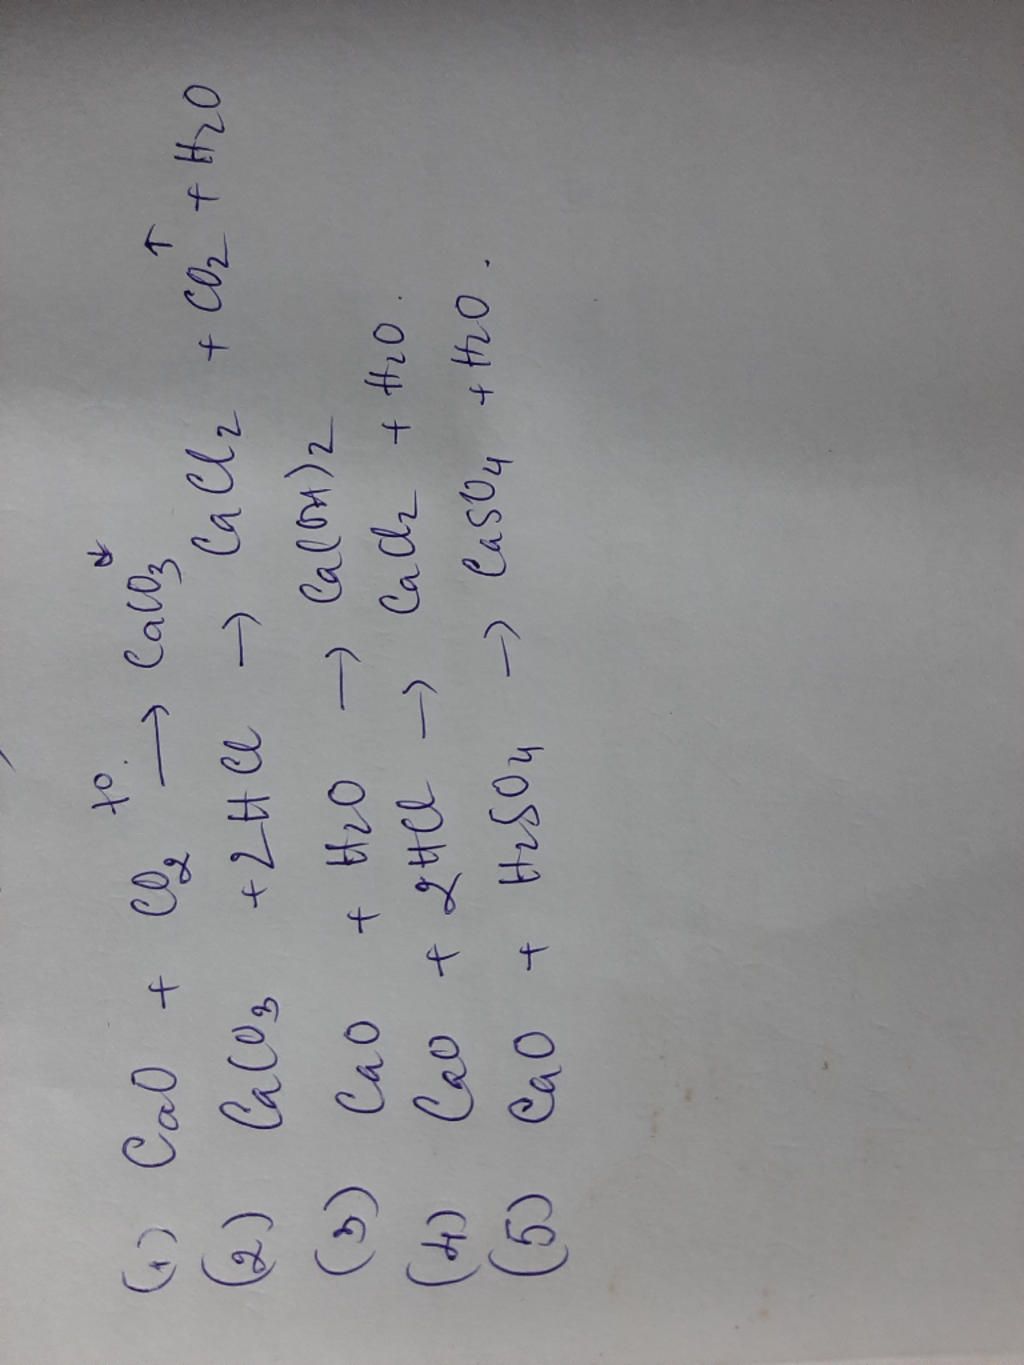 (1) CaO + CO2 t° → CaCO3 ↓
(2) CaCO3 + 2HCl → CaCl2 + CO2 ↑ + H2O
(3) CaO + H2O → Ca(OH)2
(4) CaO + 2HCl → CaCl2 + H2O.
(5) CaO + H2SO4 → CaSO4 + H2O.